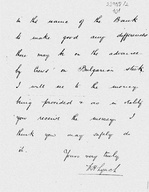 in the name of the Bank
to make good any differences
there may be on the advance
by Crews' on Bulgarian stock
I will see to the money
being provided & as a safety
you receive the money I
think you may safely do
it.
Yours very truly